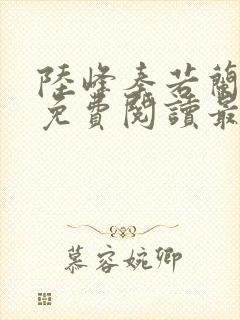 陸峰秦若蘭
免費閱讀最
慕容婉卿